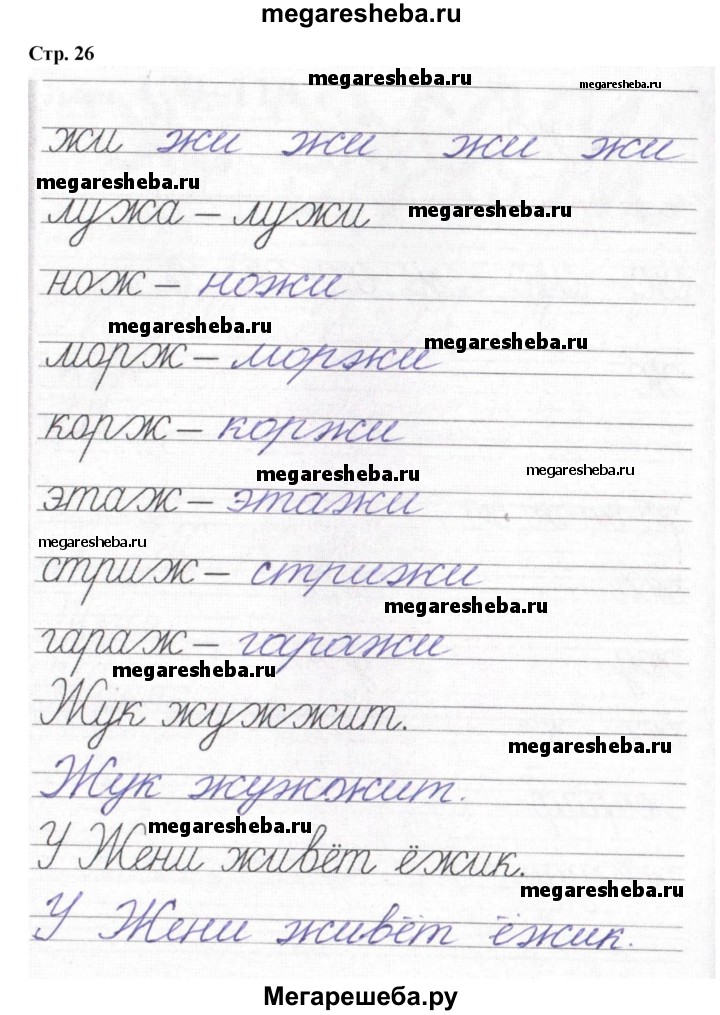 megaresheba.ru
Стр. 26
megaresheba.ru megaresheba.ru
жи жи жи жи жи
megaresheba.ru
лужа – лужи megaresheba.ru
нож – ножи
megaresheba.ru megaresheba.ru
морж – моржи
корж – коржи
megaresheba.ru megaresheba.ru
этаж – этажи
megaresheba.ru
стриж – стрижи
megaresheba.ru
гараж – гаражи
megaresheba.ru
Жук жужжит.
megaresheba.ru
Жук жужжит.
megaresheba.ru
У Жени живёт ёжик.
megaresheba.ru
У Жени живёт ёжик.
Мегарешеба.ру